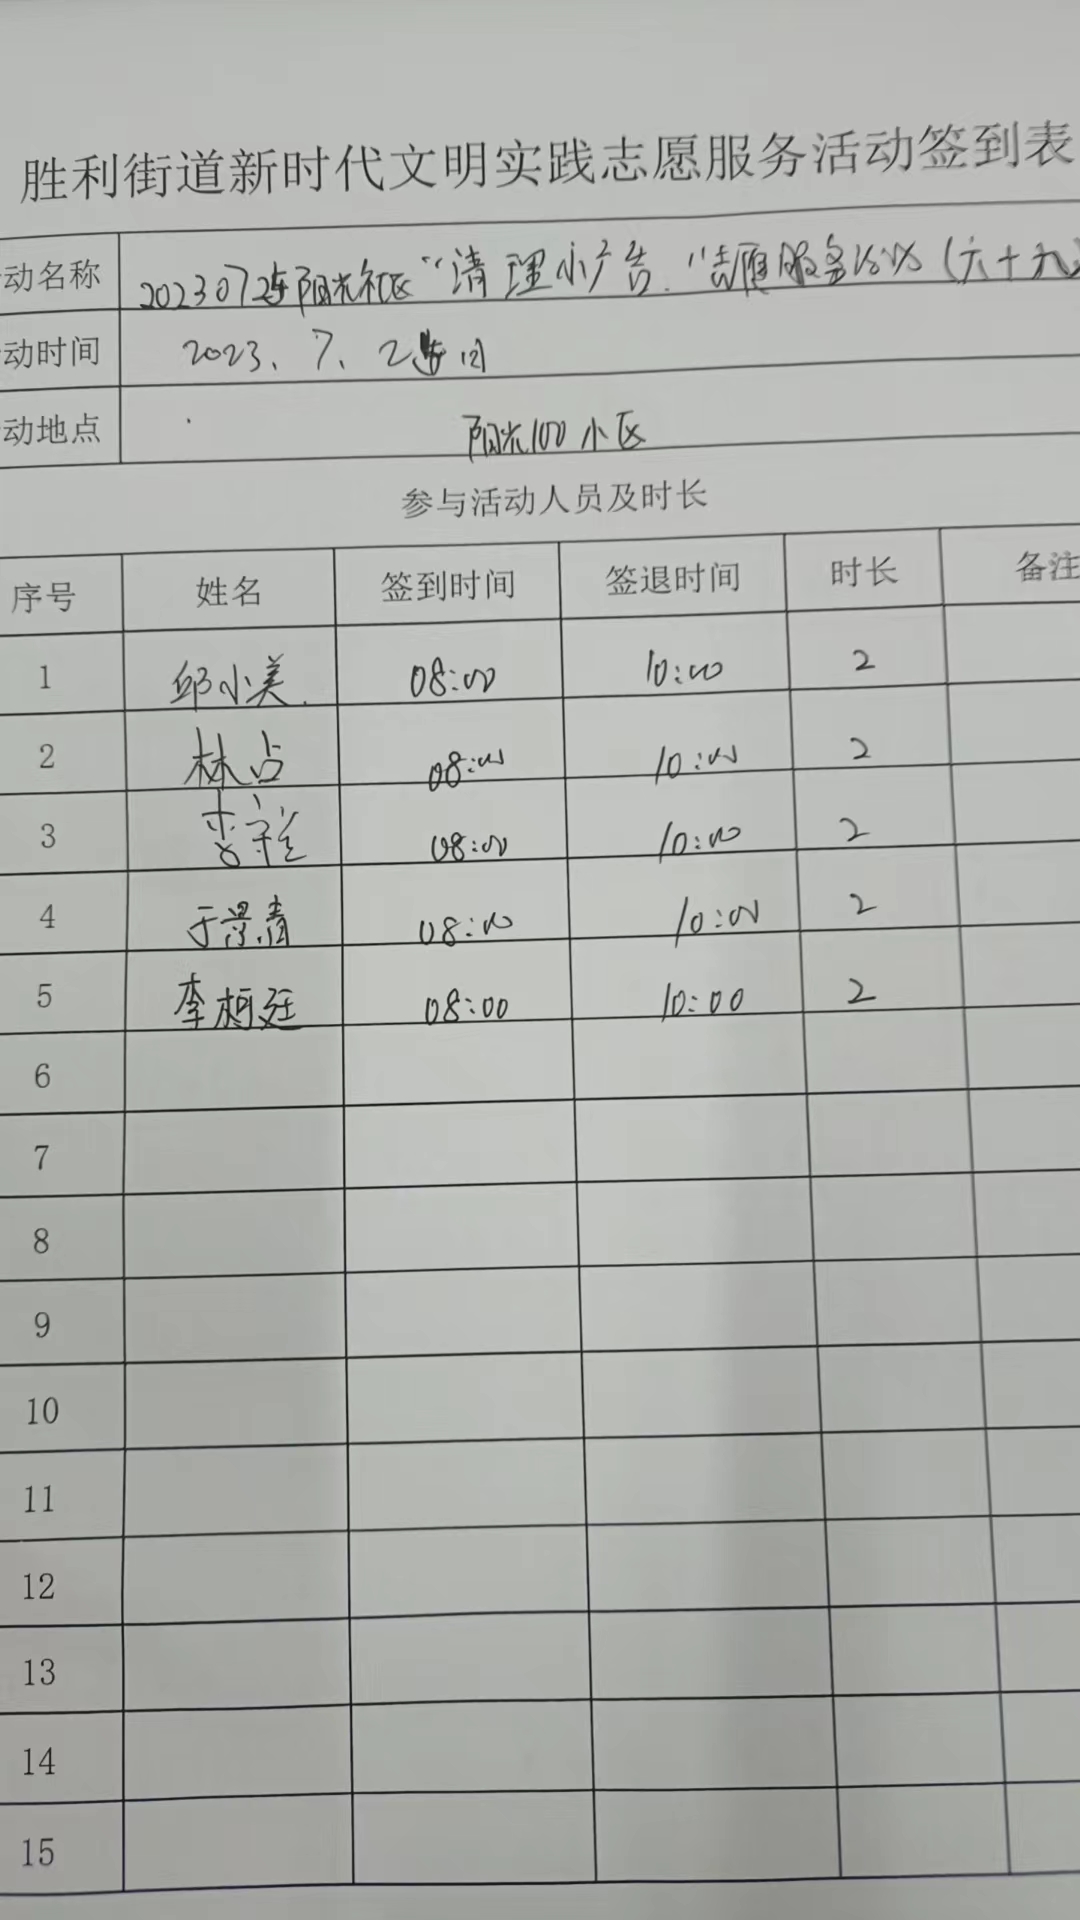 胜利街道新时代文明实践志愿服务活动签到表
动名称 20230725阳光社区“清理小广告”志愿服务活动(六十九)
动时间 2023.7.25日
动地点 阳光100小区
参与活动人员及时长
序号 姓名 签到时间 签退时间 时长 备注
1 邱小美 08:00 10:00 2
2 林占 08:00 10:00 2
3 李 08:00 10:00 2
4 于景清 08:00 10:00 2
5 李 廷 08:00 10:00 2
6
7
8
9
10
11
12
13
14
15